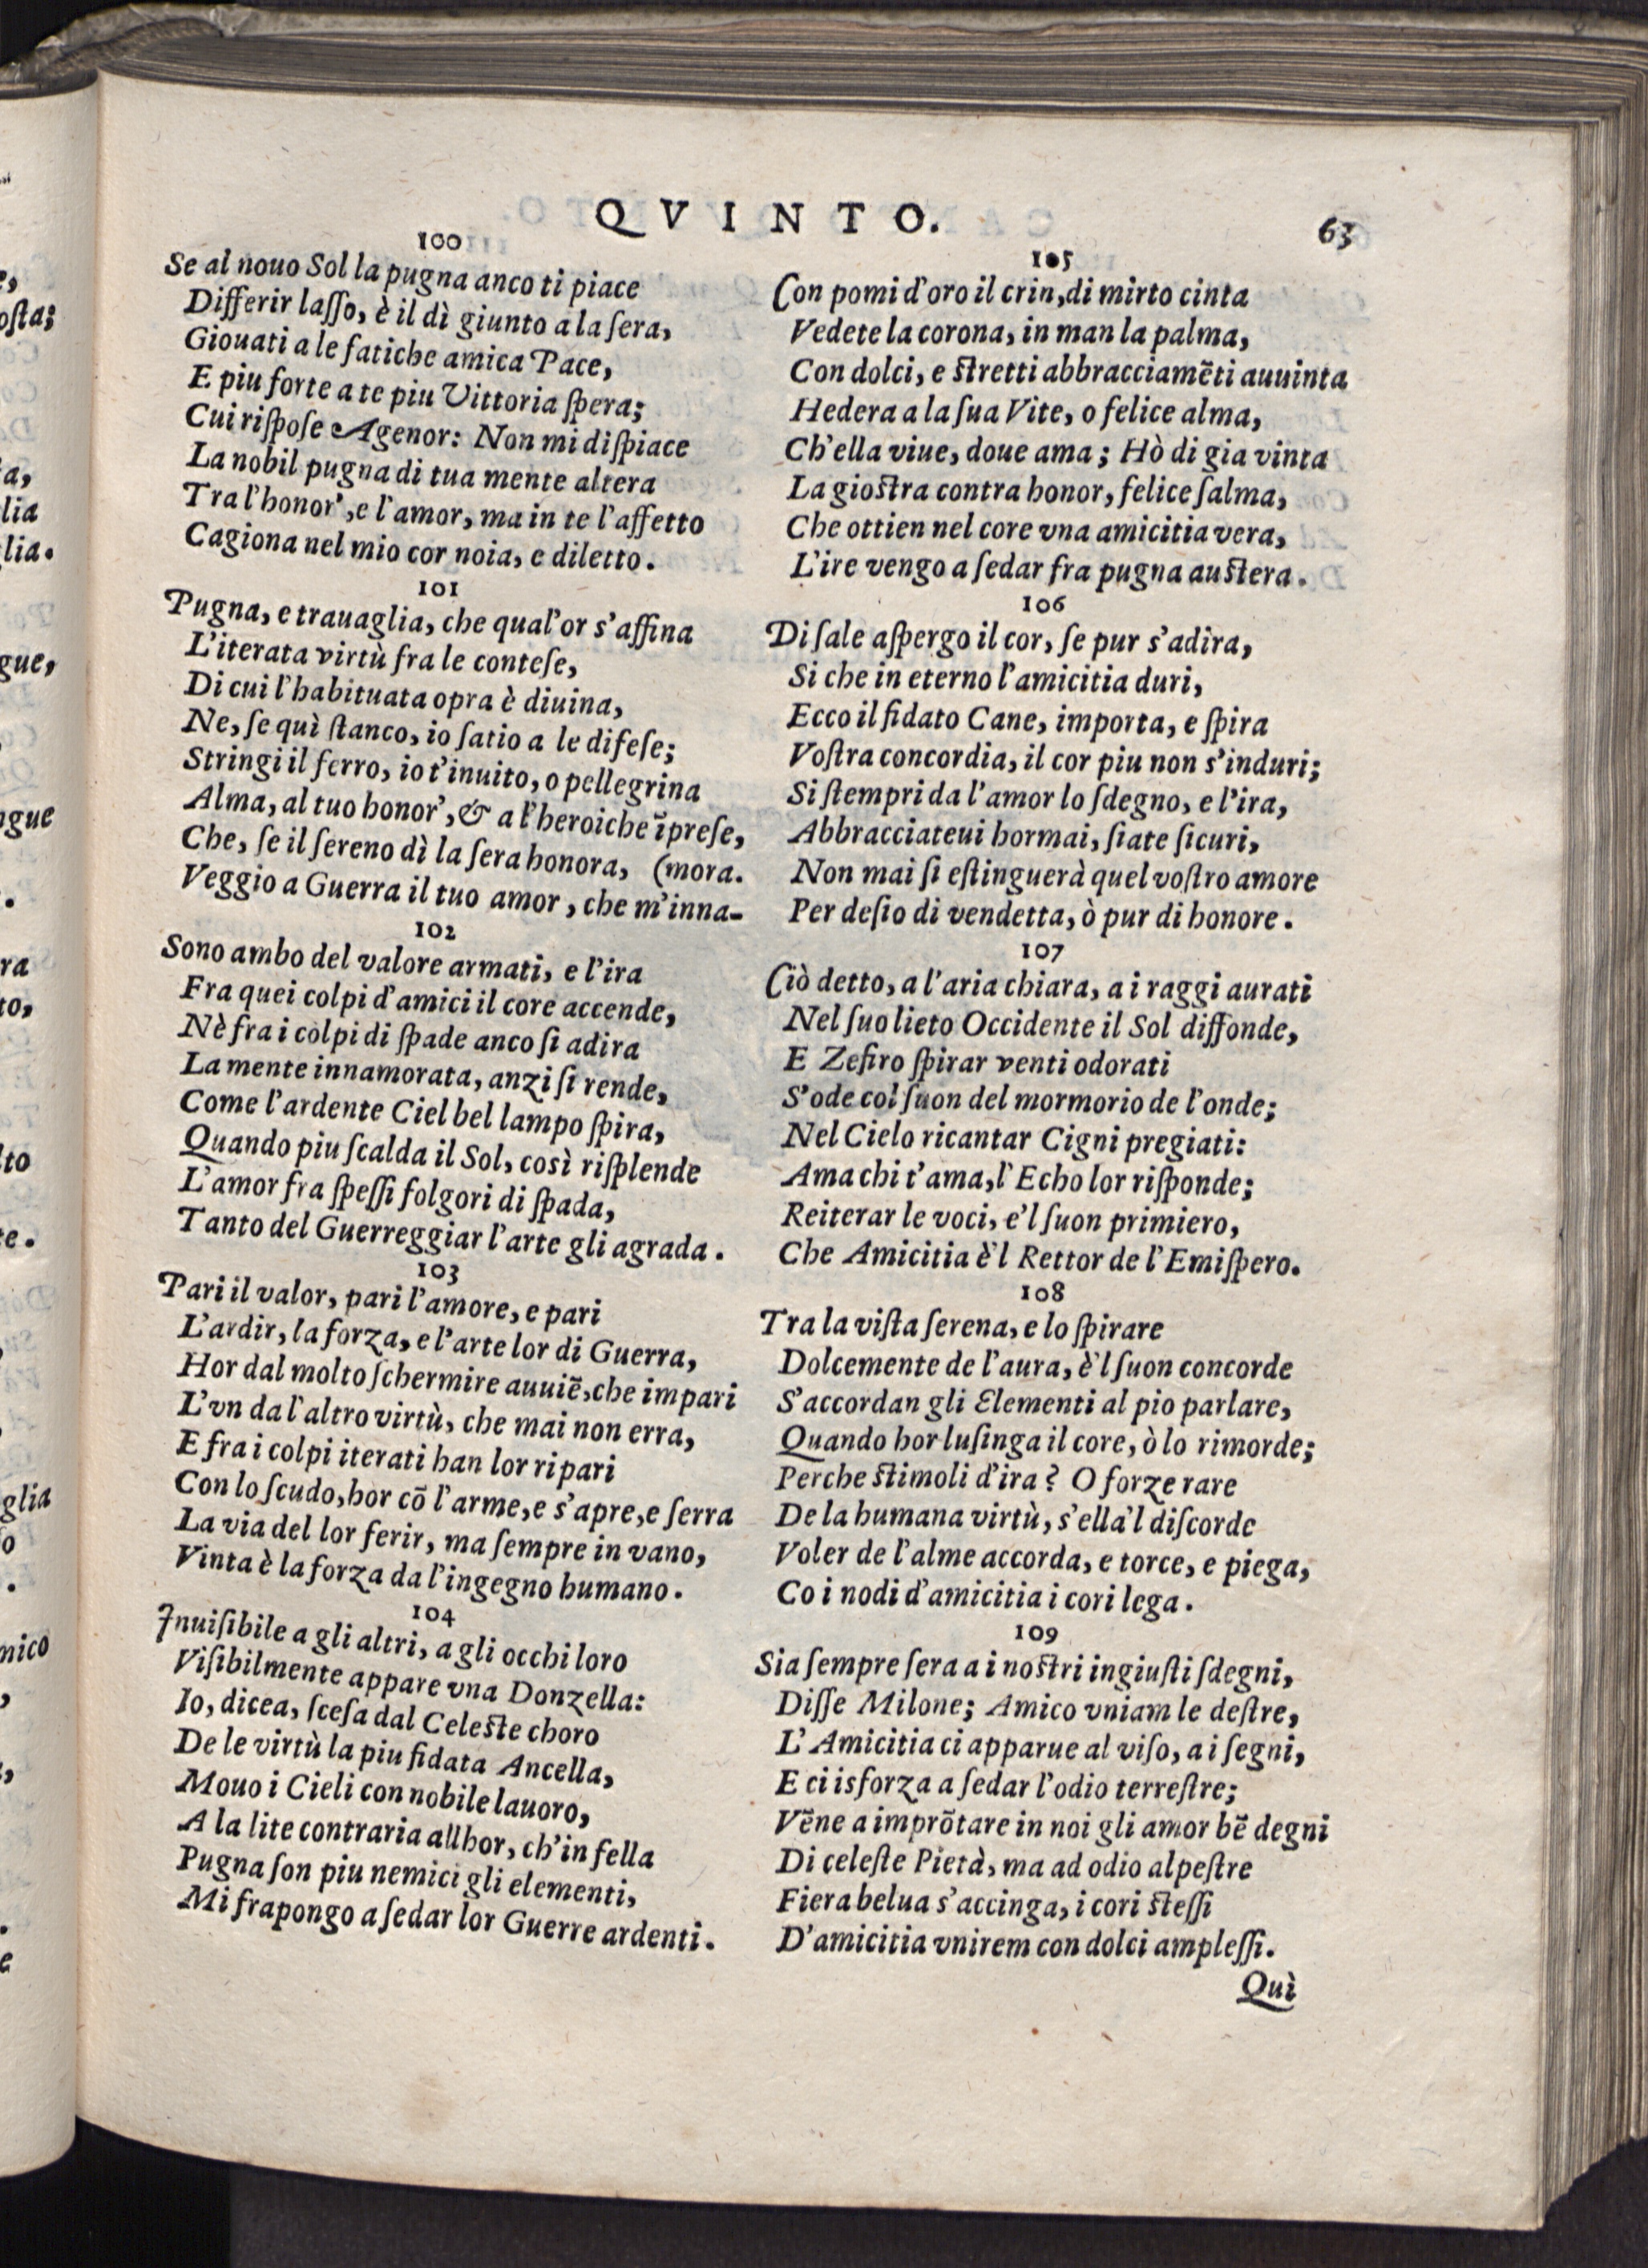 QVINTO.
63
100
Se al nouo Sol la pugna anco ti piace
Differir laſſo, è il dì giunto a la ſera,
Giouati a le fatiche amica Pace,
E piu forte a te piu Vittoria ſpera;
Cui riſpoſe Agenor: Non mi diſpiace
La nobil pugna di tua mente altera
Tra l'honor', e l'amor, ma in te l'affetto
Cagiona nel mio cor noia, e diletto.
101
Pugna, e trauaglia, che qual'or s'affina
L'iterata virtù fra le conteſe,
Di cui l'habituata opra è diuina,
Ne, ſe quì ſtanco, io ſatio a le difeſe;
Stringi il ferro, io t'inuito, o pellegrina
Alma, al tuo honor', & a l'heroiche īpreſe,
Che, ſe il ſereno dì la ſera honora, (mora.
Veggio a Guerra il tuo amor, che m'inna-
102
Sono ambo del valore armati, e l'ira
Fra quei colpi d'amici il core accende,
Nè fra i colpi di ſpade anco ſi adira
La mente innamorata, anzi ſi rende,
Come l'ardente Ciel bel lampo ſpira,
Quando piu ſcalda il Sol, così riſplende
L'amor fra ſpeſſi folgori di ſpada,
Tanto del Guerreggiar l'arte gli agrada.
103
Pari il valor, pari l'amore, e pari
L'ardir, la forza, e l'arte lor di Guerra,
Hor dal molto ſchermire auuiē, che impari
L'vn da l'altro virtù, che mai non erra,
E fra i colpi iterati han lor ripari
Con lo ſcudo, hor cō l'arme, e s'apre, e ſerra
La via del lor ferir, ma ſempre in vano,
Vinta è la forza da l'ingegno humano.
104
Inuiſibile a gli altri, a gli occhi loro
Viſibilmente appare vna Donzella:
Io, dicea, ſceſa dal Celeſte choro
De le virtù la piu fidata Ancella,
Mouo i Cieli con nobile lauoro,
A la lite contraria allhor, ch'in fella
Pugna ſon piu nemici gli elementi,
Mi frapongo a ſedar lor Guerre ardenti.
105
Con pomi d'oro il crin, di mirto cinta
Vedete la corona, in man la palma,
Con dolci, e ſtretti abbracciamēti auuinta
Hedera a la ſua Vite, o felice alma,
Ch'ella viue, doue ama; Hò di gia vinta
La gioſtra contra honor, felice ſalma,
Che ottien nel core vna amicitia vera,
L'ire vengo a ſedar fra pugna auſtera.
106
Di ſale aſpergo il cor, ſe pur s'adira,
Si che in eterno l'amicitia duri,
Ecco il fidato Cane, importa, e ſpira
Voſtra concordia, il cor piu non s'induri;
Si ſtempri da l'amor lo ſdegno, e l'ira,
Abbracciateui hormai, ſiate ſicuri,
Non mai ſi eſtinguerà quel voſtro amore
Per deſio di vendetta, ò pur di honore.
107
Ciò detto, a l'aria chiara, a i raggi aurati
Nel ſuo lieto Occidente il Sol diffonde,
E Zefiro ſpirar venti odorati
S'ode col ſuon del mormorio de l'onde;
Nel Cielo ricantar Cigni pregiati:
Ama chi t'ama, l'Echo lor riſponde;
Reiterar le voci, e'l ſuon primiero,
Che Amicitia è'l Rettor de l'Emiſpero.
108
Tra la viſta ſerena, e lo ſpirare
Dolcemente de l'aura, è'l ſuon concorde
S'accordan gli Elementi al pio parlare,
Quando hor luſinga il core, ò lo rimorde;
Perche ſtimoli d'ira? O forze rare
De la humana virtù, s'ella'l diſcorde
Voler de l'alme accorda, e torce, e piega,
Co i nodi d'amicitia i cori lega.
109
Sia ſempre ſera a i noſtri ingiuſti ſdegni,
Diſſe Milone; Amico vniam le deſtre,
L'Amicitia ci apparue al viſo, a i ſegni,
E ci isforza a ſedar l'odio terreſtre;
Vēne a imprōtare in noi gli amor bē degni
Di celeſte Pietà, ma ad odio alpeſtre
Fiera belua s'accinga, i cori ſteſſi
D'amicitia vnirem con dolci ampleſſi.
Quì